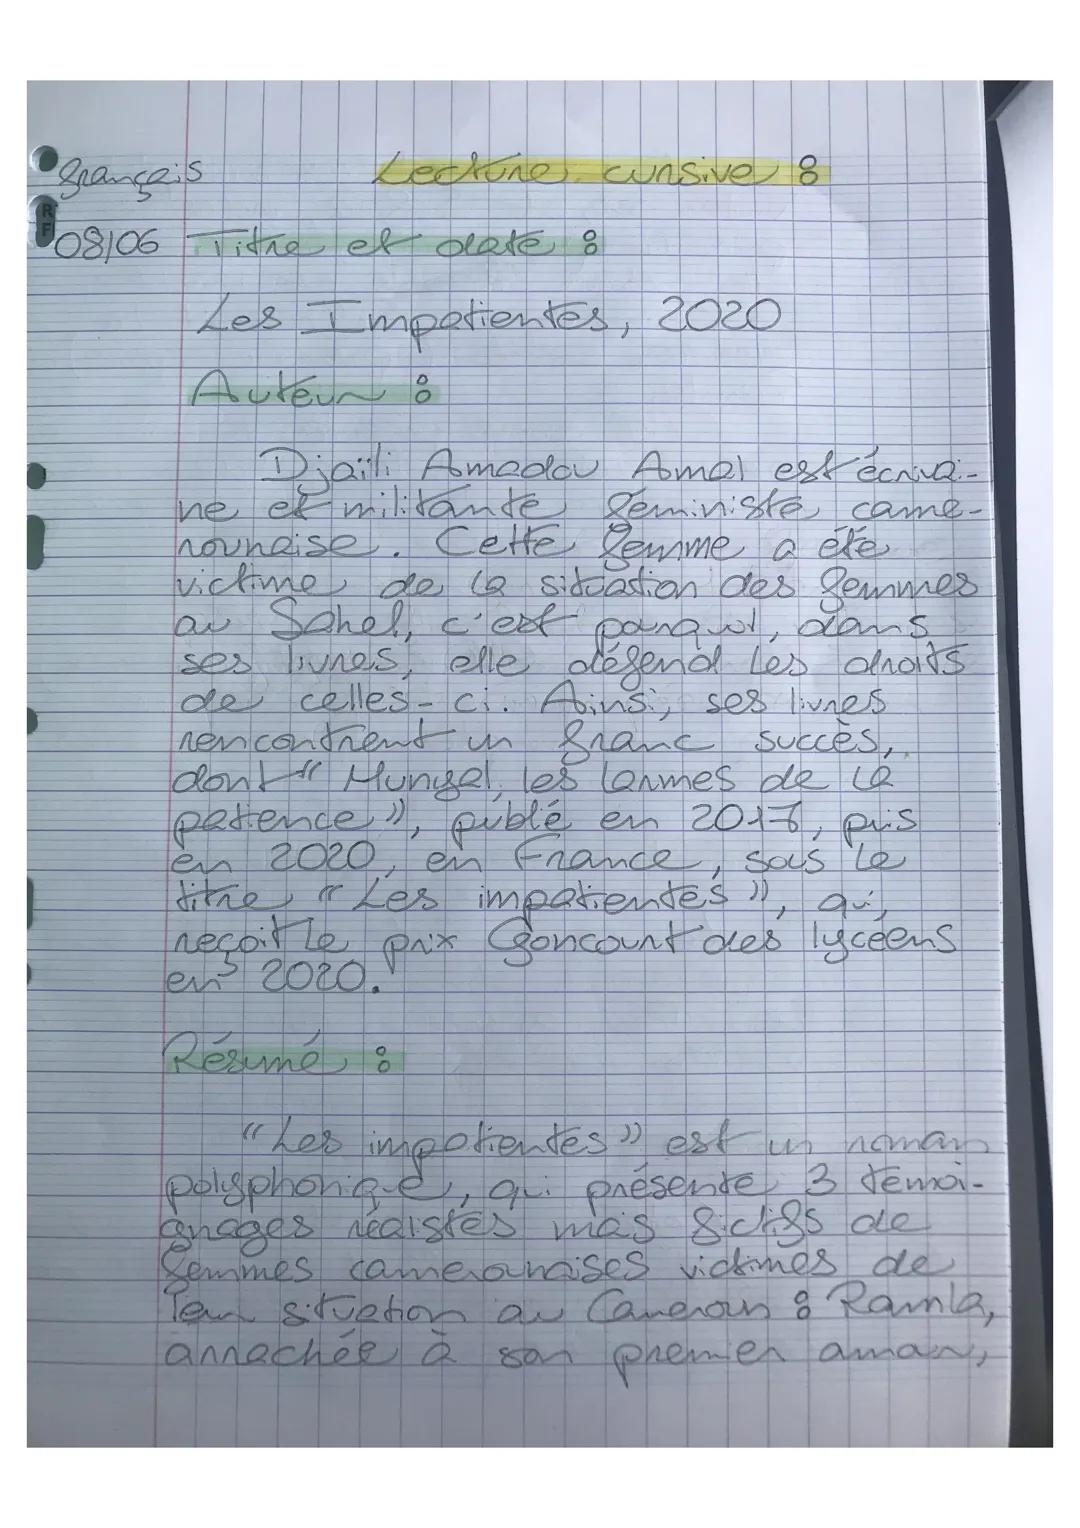 français Lecture cursive :
RF
08/06 Titre et date :
Les Impatientes, 2020
Auteur :
Djaïli Amadou Amal est écrivai-
ne et militante féministe came-
rounaise. Cette femme a été
victime de la situation des femmes
au Sahel, c'est pourquoi, dans
ses livres, elle défend les droits
de celles-ci. Ainsi, ses livres
rencontrent un franc succès,
dont "Munyal, les larmes de la
patience", publé en 2017, puis
en 2020, en France, sous le
titre "Les impatientes", qui,
reçoit le prix Goncourt des lycéens
en 2020.
Résumé :
"Les impatientes" est un roman
polyphonique, qui présente 3 témoi-
gnages réalistes mais fictifs de
femmes camerounaises victimes de
leur situation au Cameroun : Ramla,
arrachée à son premier amour,